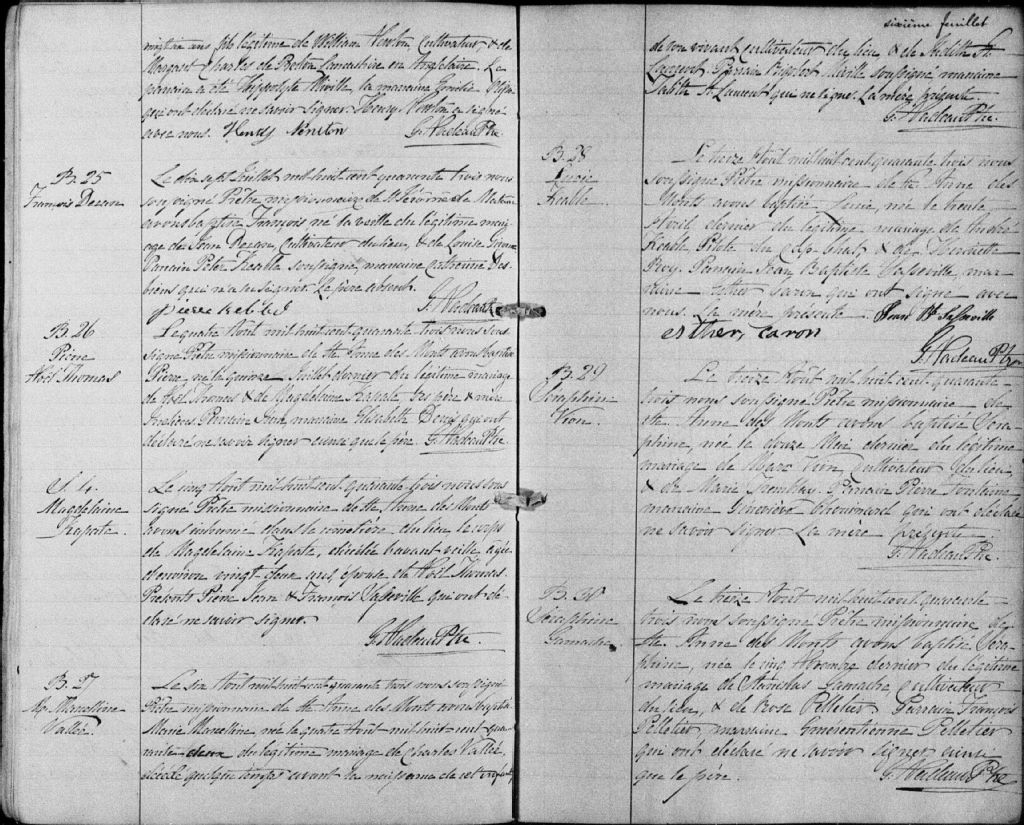 vingt un ans fils légitime de William Newton, Cultivateur & de
Margaret Charles de Preston Lancashire en Angleterre. Le
parrain a été Hippolyte Miville, la marraine Emilie
qui ont déclaré ne savoir signer. Henry Newton a signé
avec nous. Henry Newton G. Nadeau Ptre.
B. 25
François Decave
Le dix sept Juillet mil huit cent quarante trois nous
soussigné Prêtre missionnaire de St Jérôme de Matane
avons baptisé François né la veille du légitime mari-
age de Jean Decave, Cultivateur du lieu, & de Louise
Parrain Peter Keable soussigné, marraine Catherine Des-
biens qui n'a su signer. Le père absent.
pierre kebled G. Nadeau Ptre
B. 26
Pierre
Noël Thomas
Le quatre Août mil huit cent quarante trois nous sous
signé Prêtre missionnaire de Ste Anne des Monts avons baptisé
Pierre, né le quinze Juillet dernier du légitime mariage
de Noël Thomas & de Magdelaine Kapate, ses père & mère
Indiens. Parrain Jean, marraine Elisabeth Denis qui ont
déclaré ne savoir signer ainsi que le père. G. Nadeau Ptre.
S. 4.
Magdelaine
Kapate.
Le cinq Août mil huit cent quarante trois nous sous
signé Prêtre missionnaire de Ste Anne des Monts
avons inhumé dans le cimetière du lieu le corps
de Magdelaine Kapate, décédée l'avant veille agée
d'environ vingt deux ans, épouse de Noël Thomas.
Présents Pierre Jean & François Vallerville qui ont dé-
claré ne savoir signer.
G. Nadeau Ptre.
B. 27
M. Marcelline
Vallée
Le dix Août mil huit cent quarante trois nous soussigné
Prêtre missionnaire de Ste Anne des Monts avons baptisé
Marie Marcelline, née le quatre Août mil huit cent qua-
rante deux du légitime mariage de Charles Vallée,
décédé quelque temps avant la naissance de cet enfant,
sixième feuillet
de son vivant cultivateur du lieu & de Judith St.
Laurent. Parrain Rigobert Miville soussigné marraine
Judith St Laurent qui ne signe. La mère présente.
G. Nadeau Ptre.
B. 28
Lucie
Keable
Le treize Août mil huit cent quarante trois nous
soussigné Prêtre missionnaire de Ste Anne des
Monts avons baptisé Lucie, née le trente
Avril dernier du légitime mariage de André
Keable, Pilote du Cap Chat, & de Henriette
Roy. Parrain Jean Baptiste Vallerville, mar-
raine Esther Caron qui ont signé avec
nous. La mère présente. Jean Bte
esther, caron
G. Nadeau Ptre
B. 29
Séraphine
Vion.
Le treize Août mil huit cent quarante
trois nous soussigné Prêtre missionnaire de
Ste Anne des Monts avons baptisé Séra-
phine, née le douze Mai dernier du légitime
mariage de Marc Vion, Cultivateur du lieu
& de Marie Tremblay. Parrain Pierre Fontaine
marraine Geneviève Chouinard qui ont déclaré
ne savoir signer. La mère présente.
G. Nadeau Ptre.
B. 30
Séraphine
Gamache.
Le treize Août mil huit cent quarante
trois nous soussigné Prêtre missionnaire de
Ste Anne des Monts avons baptisé Séra-
phine, née le cinq Novembre dernier du légitime
mariage de Stanislas Gamache Cultivateur
du lieu, & de Rose Pelletier. Parrain François
Pelletier, marraine Emerentienne Pelletier
qui ont déclaré ne savoir signer ainsi
que le père. G. Nadeau Ptre